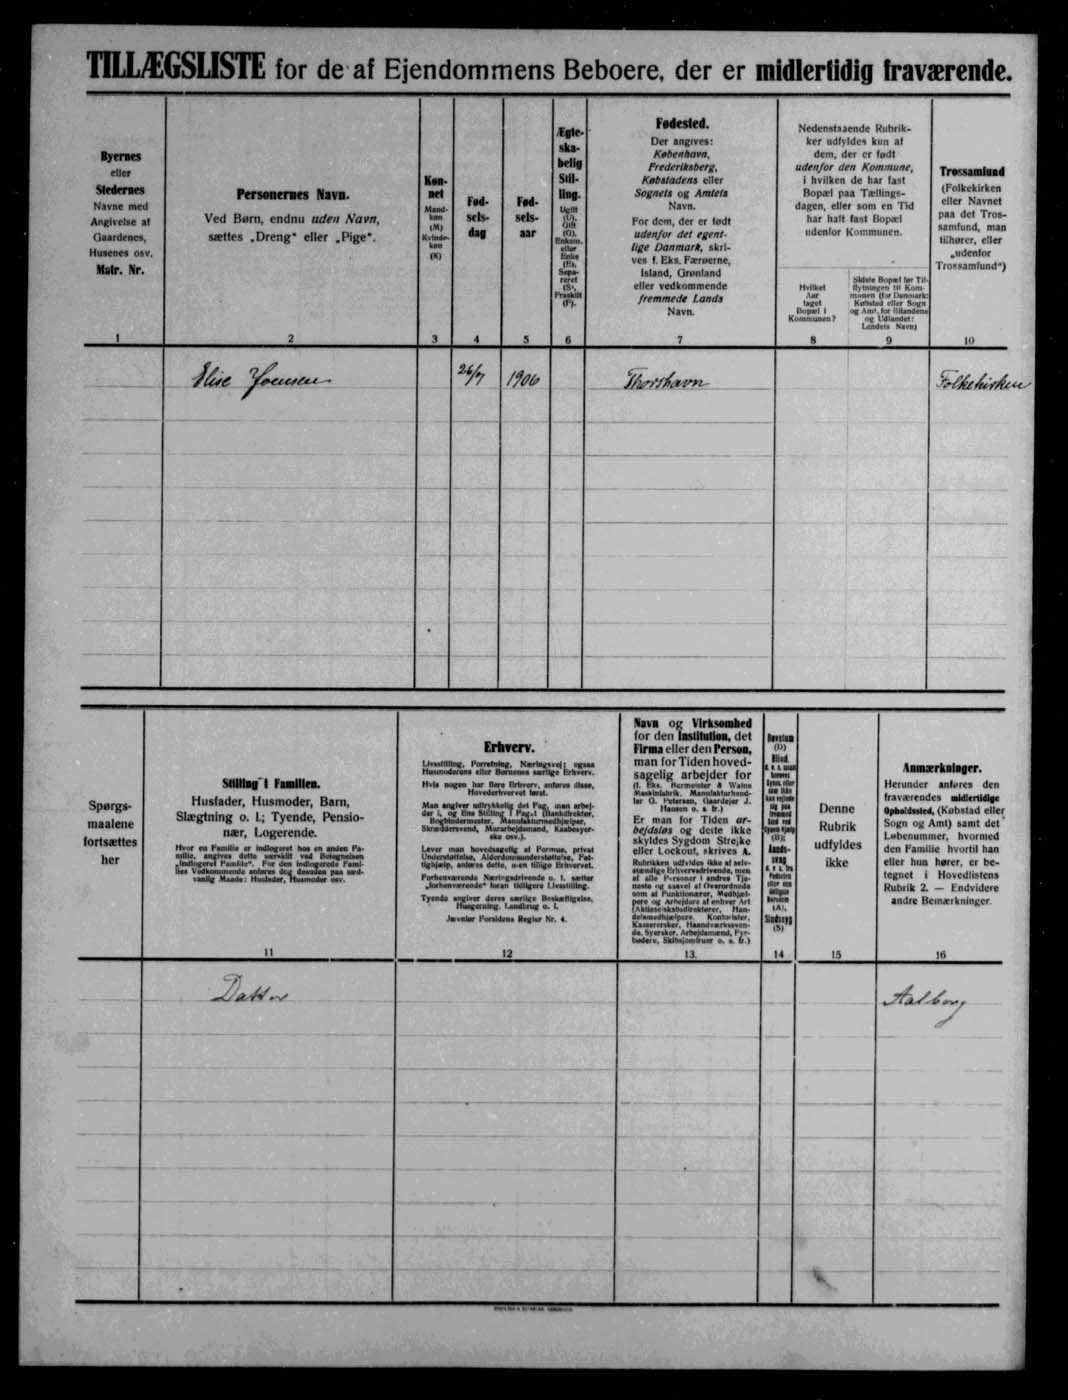 TILLÆGSLISTE for de af Ejendommens Beboere, der er midlertidig fraværende.
Byernes
eller
Stedernes
Navne med
Angivelse af
Gaardenes,
Husenes osv.
Matr. Nr.
1
Personernes Navn.
Ved Børn, endnu uden Navn,
sættes „Dreng“ eller „Pige“.
2
Køn-
net
Mand-
køn
(M)
Kvinde-
køn
(K)
3
Fød-
sels-
dag
4
Fød-
sels-
aar
5
Ægte-
ska-
belig
Stil-
ling.
Ugift
(U),
Gift
(G),
Enkem.
eller
Enke
(E),
Sepa-
reret
(S),
Fraskilt
(F).
6
Fødested.
Der angives:
København,
Frederiksberg,
Købstadens eller
Sognets og Amtets
Navn.
For dem, der er født
udenfor det egent-
lige Danmark, skri-
ves f. Eks. Færøerne,
Island, Grønland
eller vedkommende
fremmede Lands
Navn.
7
Nedenstaaende Rubrik-
ker udfyldes kun af
dem, der er født
udenfor den Kommune,
i hvilken de har fast
Bopæl paa Tællings-
dagen, eller som en Tid
har haft fast Bopæl
udenfor Kommunen.
Hvilket
Aar
taget
Bopæl i
Kommunen?
8
Sidste Bopæl før Til-
flytningen til Kom-
munen (for Danmark:
Købstad eller Sogn
og Amt, for Bilandene
og Udlandet:
Landets Navn)
9
Trossamfund
(Folkekirken
eller Navnet
paa det Tros-
samfund, man
tilhører, eller
„udenfor
Trossamfund“)
10
Elise Joensen 26/7 1906 Thorshavn Folkekirken
Spørgs-
maalene
fortsættes
her
Stilling i Familien.
Husfader, Husmoder, Barn,
Slægtning o. l.; Tyende, Pensio-
nær, Logerende.
Hvor en Familie er indlogeret hos en anden Fa-
milie, angives dette særskilt ved Betegnelsen
„indlogeret Familie“. For den indlogerede Fami-
lies Vedkommende anføres dog desuden paa sæd-
vanlig Maade: Husfader, Husmoder osv.
11
Erhverv.
Livsstilling, Forretning, Næringsvej; ogsaa
Husmoderens eller Børnenes særlige Erhverv.
Hvis nogen har flere Erhverv, anføres disse,
Hovederhvervet først.
Man angiver udtrykkelig det Fag, man arbej-
der i, og Ens Stilling i Faget (Bankdirektør,
Bogbindermester, Manufakturmedhjælper,
Skræddersvend, Murarbejdsmand, Kaabesyer-
ske osv.).
Lever man hovedsagelig af Formue, privat
Understøttelse, Alderdomsunderstøttelse, Fat-
tighjælp, anføres dette, uden tillige Erhvervet.
Forhenværende Næringsdrivende o. l. sætter
„forhenværende“ foran tidligere Livsstilling.
Tyende angiver deres særlige Beskæftigelse,
Husgerning, Landbrug o. l.
Jævnfør Forsidens Regler Nr. 4.
12
Navn og Virksomhed
for den Institution, det
Firma eller den Person,
man for Tiden hoved-
sagelig arbejder for
(f. Eks. Burmeister & Wains
Maskinfabrik, Manufakturhand-
ler G. Petersen, Gaardejer J.
Hansen o. s. fr.)
Er man for Tiden ar-
bejdsløs og dette ikke
skyldes Sygdom Strejke
eller Lockout, skrives A.
Rubrikken udfyldes ikke af selv-
stændige Erhvervsdrivende, men
af alle Personer i andres Tje-
neste og saavel af Overordnede
som af Funktionærer, Medhjæl-
pere og Arbejdere af enhver Art
(Aktieselskabsdirektører, Han-
delsmedhjælpere, Kontorister,
Kasserersker, Haandværkssven-
de, Syersker, Arbejdsmænd, Fyr-
bødere, Skibsjomfruer o. s. fr.)
13.
Døvstum
(D)
Blind,
(B);
Aands-
svag
(A),
Sindssyg
(S)
14
Denne
Rubrik
udfyldes
ikke
15
Anmærkninger.
Herunder anføres den
fraværendes midlertidige
Opholdssted, (Købstad eller
Sogn og Amt) samt det
Løbenummer, hvormed
den Familie hvortil han
eller hun hører, er be-
tegnet i Hovedlistens
Rubrik 2. — Endvidere
andre Bemærkninger.
16
Datter Aalborg